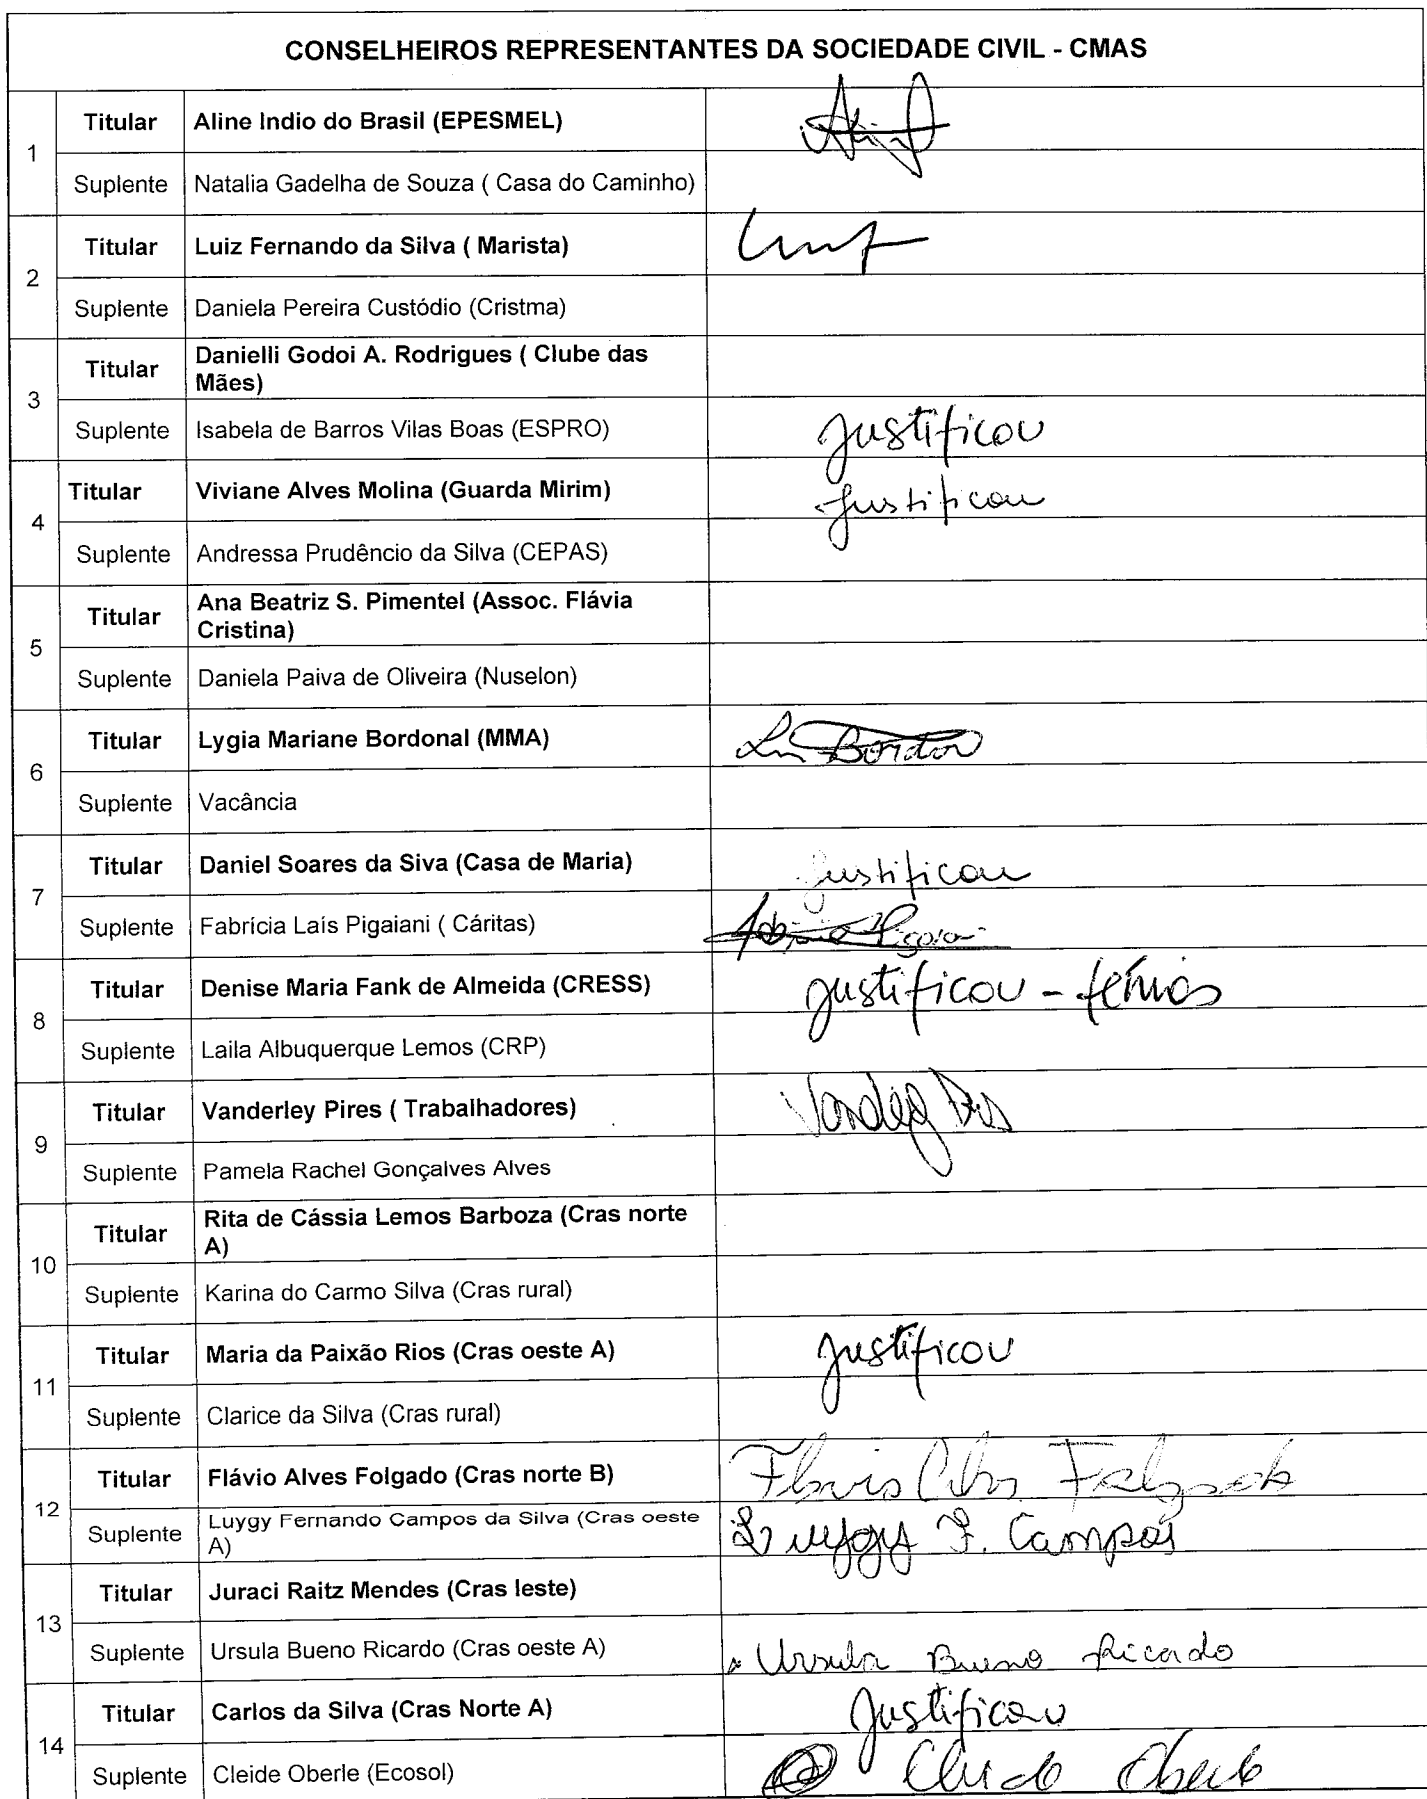 CONSELHEIROS REPRESENTANTES DA SOCIEDADE CIVIL - CMAS
1
Titular Aline Indio do Brasil (EPESMEL)
Suplente Natalia Gadelha de Souza ( Casa do Caminho)
2
Titular Luiz Fernando da Silva ( Marista)
Suplente Daniela Pereira Custódio (Cristma)
3
Titular Danielli Godoi A. Rodrigues ( Clube das
Mães)
Suplente Isabela de Barros Vilas Boas (ESPRO) Justificou
4
Titular Viviane Alves Molina (Guarda Mirim) Justificou
Suplente Andressa Prudêncio da Silva (CEPAS)
5
Titular Ana Beatriz S. Pimentel (Assoc. Flávia
Cristina)
Suplente Daniela Paiva de Oliveira (Nuselon)
6
Titular Lygia Mariane Bordonal (MMA)
Suplente Vacância
7
Titular Daniel Soares da Siva (Casa de Maria) Justificou
Suplente Fabrícia Laís Pigaiani ( Cáritas)
8
Titular Denise Maria Fank de Almeida (CRESS) Justificou - férias
Suplente Laila Albuquerque Lemos (CRP)
9
Titular Vanderley Pires ( Trabalhadores)
Suplente Pamela Rachel Gonçalves Alves
10
Titular Rita de Cássia Lemos Barboza (Cras norte
A)
Suplente Karina do Carmo Silva (Cras rural)
11
Titular Maria da Paixão Rios (Cras oeste A) Justificou
Suplente Clarice da Silva (Cras rural)
12
Titular Flávio Alves Folgado (Cras norte B)
Suplente Luygy Fernando Campos da Silva (Cras oeste
A) Luygy F. Campos
13
Titular Juraci Raitz Mendes (Cras leste)
Suplente Ursula Bueno Ricardo (Cras oeste A) Ursula Bueno Ricardo
14
Titular Carlos da Silva (Cras Norte A) Justificou
Suplente Cleide Oberle (Ecosol) Cleide Oberle